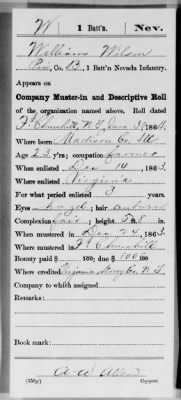 W | 1 Batt'n. | Nev.
William Wilson
Pvt, Co. B, 1 Batt'n Nevada Infantry.
Appears on
Company Muster-in and Descriptive Roll
of the organization named above. Roll dated
Ft Churchill, N.T. June 30, 1864.
Where born Madison Co Ill
Age 23 y'rs; occupation farmer
When enlisted Dec 14, 1863.
Where enlisted Virginia
For what period enlisted 3 years.
Eyes hazel; hair auburn
Complexion fair; height 5 ft. 8 in.
When mustered in Dec 24, 1863.
Where mustered in Ft Churchill
Bounty paid $ 100; due $ 100 100
Where credited Virginia Storey Co. N.T.
Company to which assigned
Remarks:
Book mark:
(336g) Copyist.